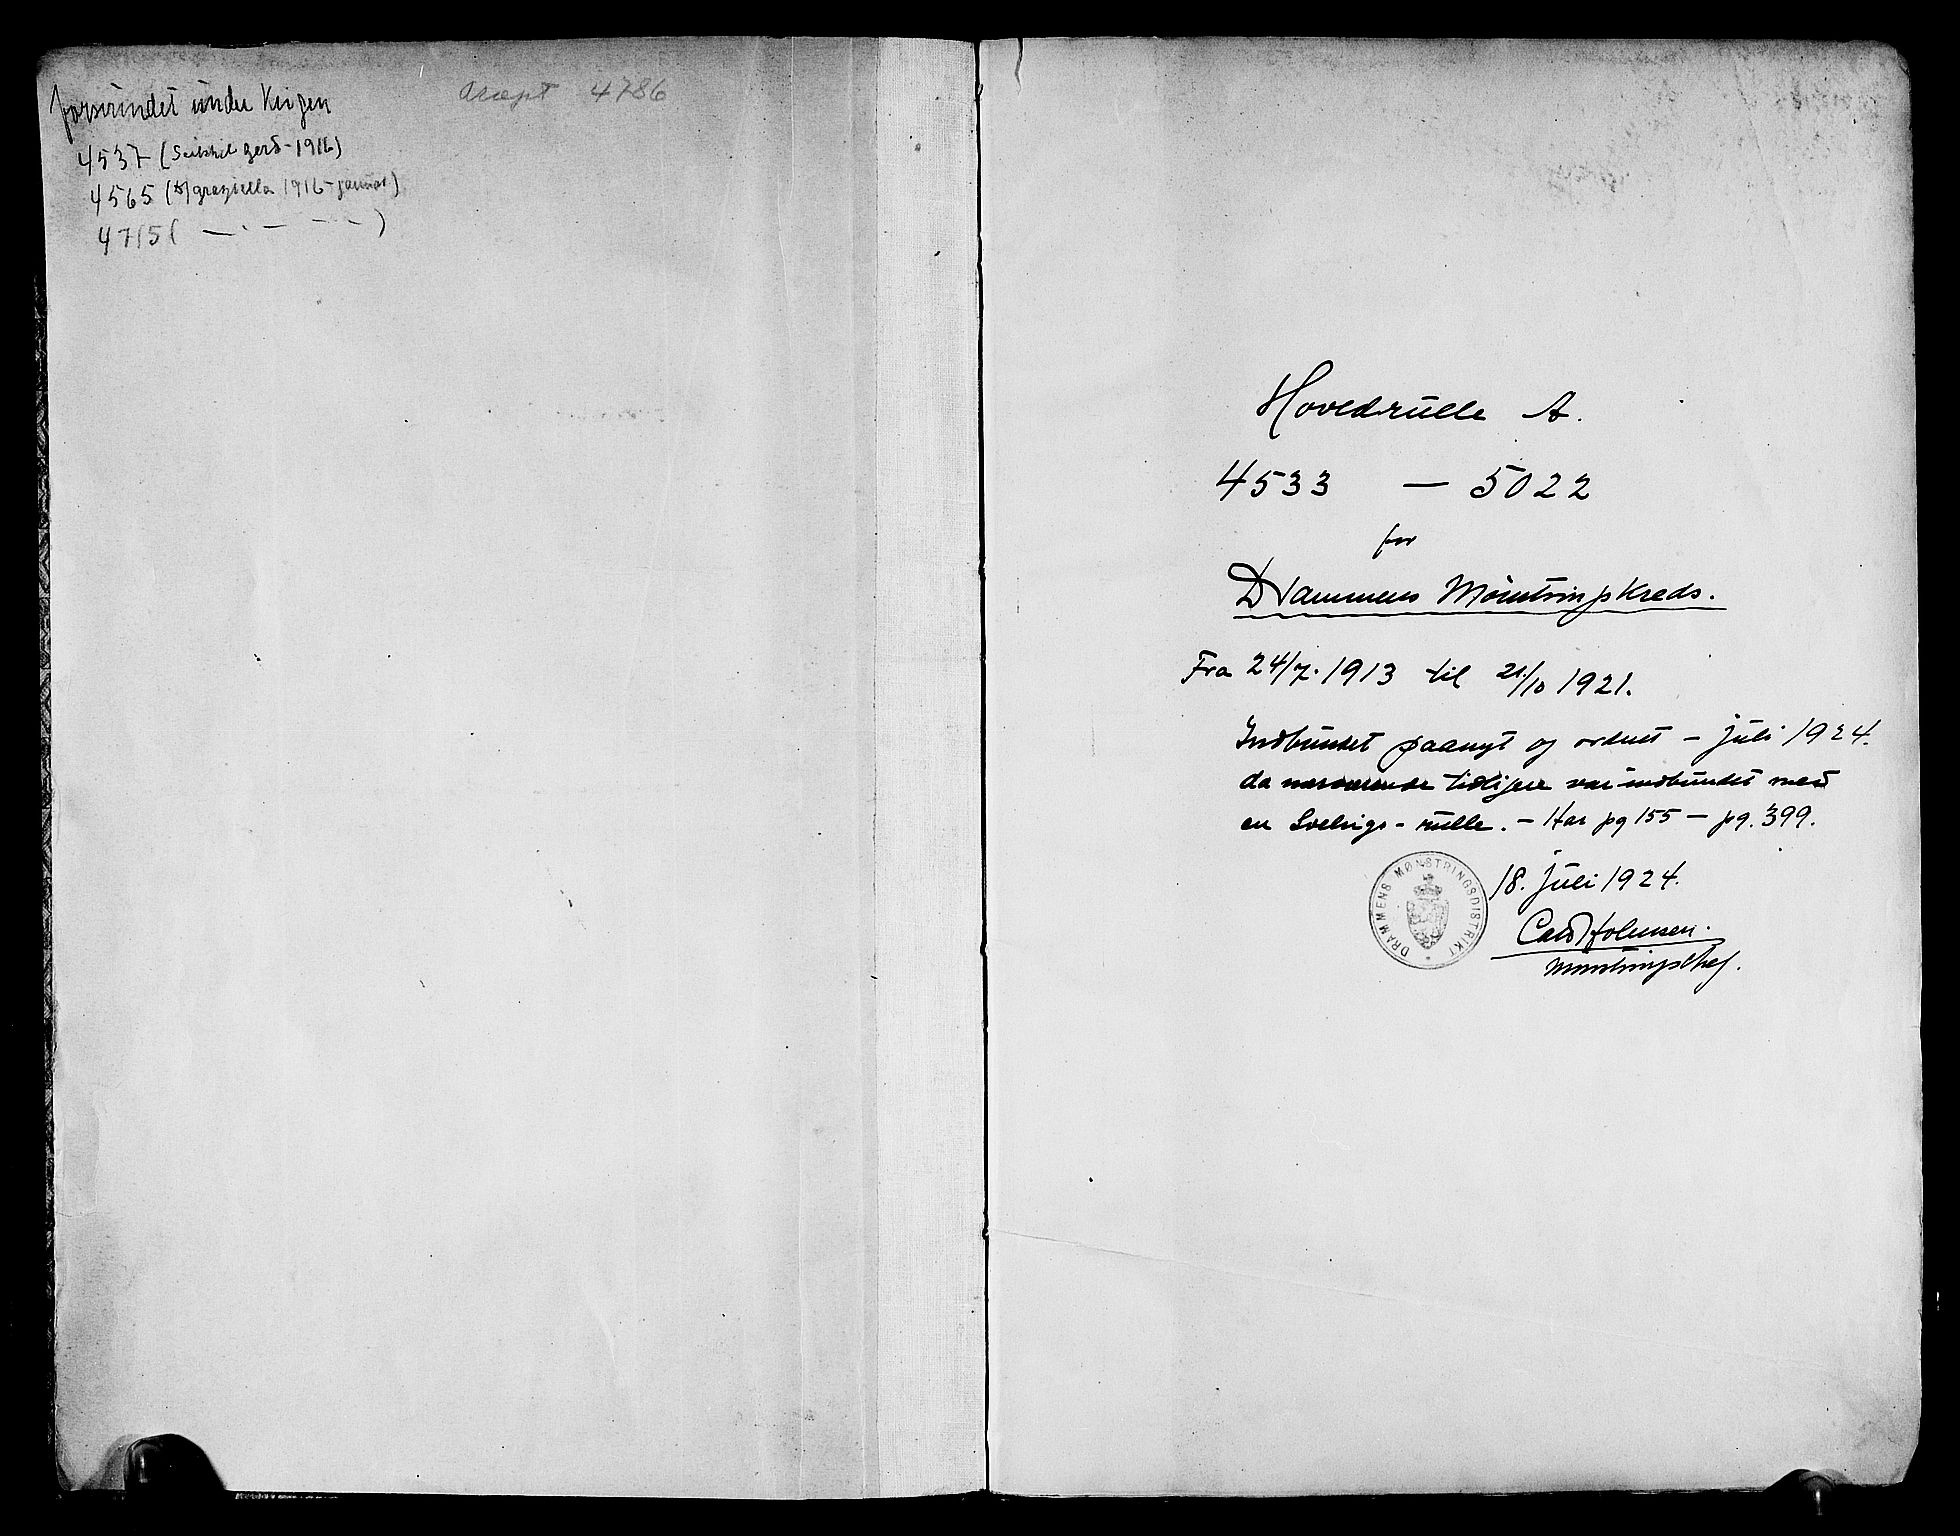 forsvundet under Krigen
4537 (Seilskib Gerd - 1916)
4565 (D/S Graziella 1916 - januar)
4715 ( — · — — — )
4786
Hovedrulle A.
4533 — 5022
for
Drammens Mønstringskreds.
Fra 24/7. 1913 til 21/10 1921.
Indbundet paanyt og ordnet - juli 1924.
da nærværende tidligere var indbundet med
en Svelvigs-rulle. - Har pg 155 - pg. 399.
18. juli 1924.
Mønstringschef.
DRAMMENS MØNSTRINGSDISTRIKT